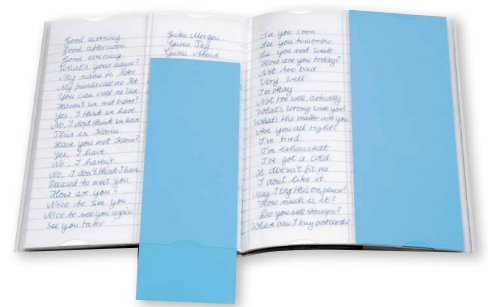 Good morning
Good afternoon
Good evening
What's your name?
My name is
My friends call me
You can call me
Haven't we met before?
Yes, I think we have
No, I don't think we have
This is
Have you met
Yes, I have
No, I haven't
No, I don't think I have
Pleased to meet you
How are you?
Nice to see you
Nice to see you again
See you later
Guten Morgen
Guten Tag
Guten Abend
See you soon
See you tomorrow
See you next week
How are you today?
Not too bad
Very well
I'm okay
Not too well actually
What's wrong with you?
What's the matter with you
Are you all right?
I'm tired
I'm
I've got a cold
It doesn't fit me
I don't like it
May I try this on, please?
How much is it?
Do you sell
Where can I buy postcards